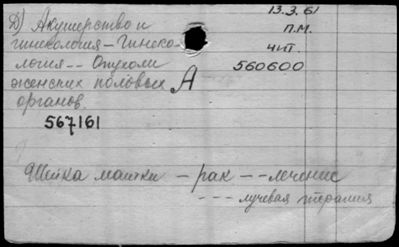 Д) Акушерство и
гинекология - Гинеко-
логия -- Опухоли
женских половых
органов.
567161
А
13.3.61
п.м.
чит.
560600
Шейка матки - рак --- лечение
--- лучевая терапия